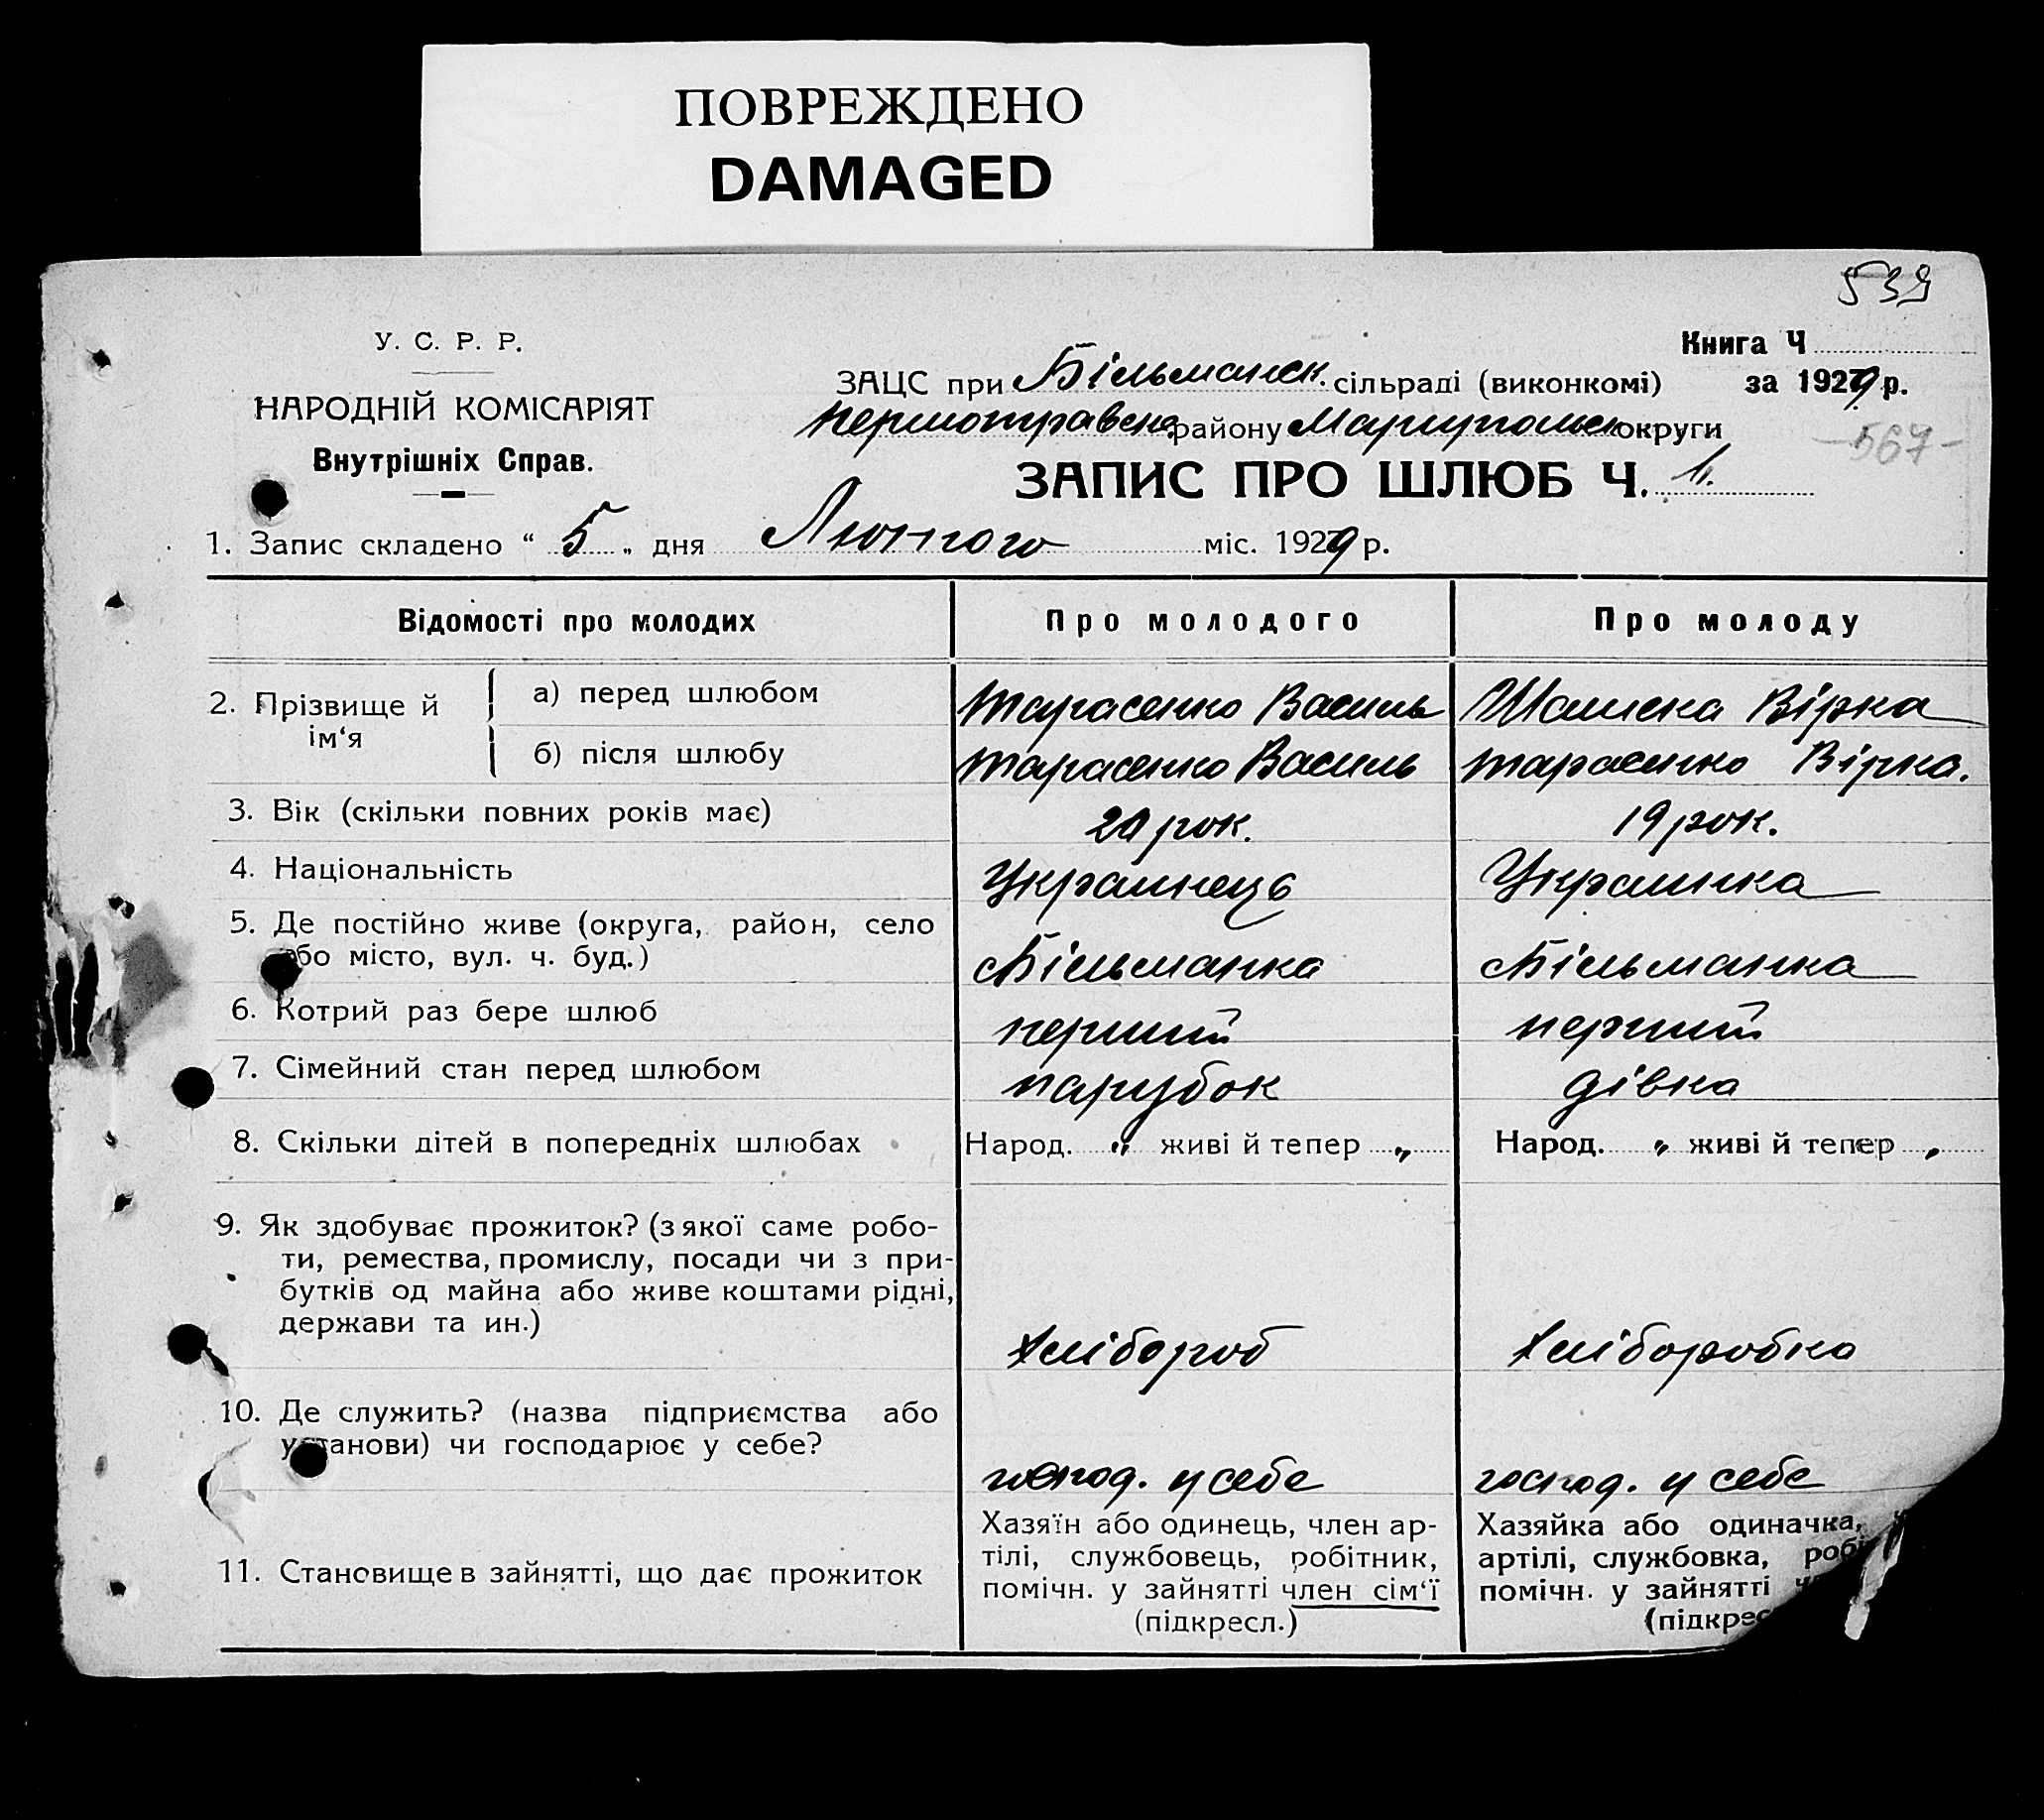 ПОВРЕЖДЕНО
DAMAGED
539
У. С. Р. Р.
НАРОДНІЙ КОМІСАРІЯТ
Внутрішніх Справ.
Книга Ч
ЗАЦС при Більманск. сільраді (виконкомі) за 1929 р.
району Маріупольск округи
-567-
ЗАПИС ПРО ШЛЮБ Ч.
1. Запис складено “ 5 „ дня Лютого міс. 1929 р.
Відомості про молодих Про молодого Про молоду
2. Прізвище й ім‘я
а) перед шлюбом Тарасенко Василь Вірка
б) після шлюбу Тарасенко Василь Тарасенко Вірка.
3. Вік (скільки повних років має) 20 рок. 19 рок.
4. Національність Украинець Украинка
5. Де постійно живе (округа, район, село
або місто, вул. ч. буд.) Більманка Більманка
6. Котрий раз бере шлюб перший перший
7. Сімейний стан перед шлюбом парубок дівка
8. Скільки дітей в попередніх шлюбах Народ. „ живі й тепер „ Народ. „ живі й тепер „
9. Як здобуває прожиток? (з якої саме робо-
ти, ремества, промислу, посади чи з при-
бутків од майна або живе коштами рідні,
держави та ин.) Хлібороб Хліборобка
10. Де служить? (назва підприємства або
установи) чи господарює у себе? господ. у себе господ. у себе
11. Становище в зайнятті, що дає прожиток
Хазяїн або одинець, член ар-
тілі, службовець, робітник,
помічн. у зайнятті член сім‘ї
(підкресл.)
Хазяйка або одиначка,
артілі, службовка, робі
помічн. у зайнятті
(підкрес